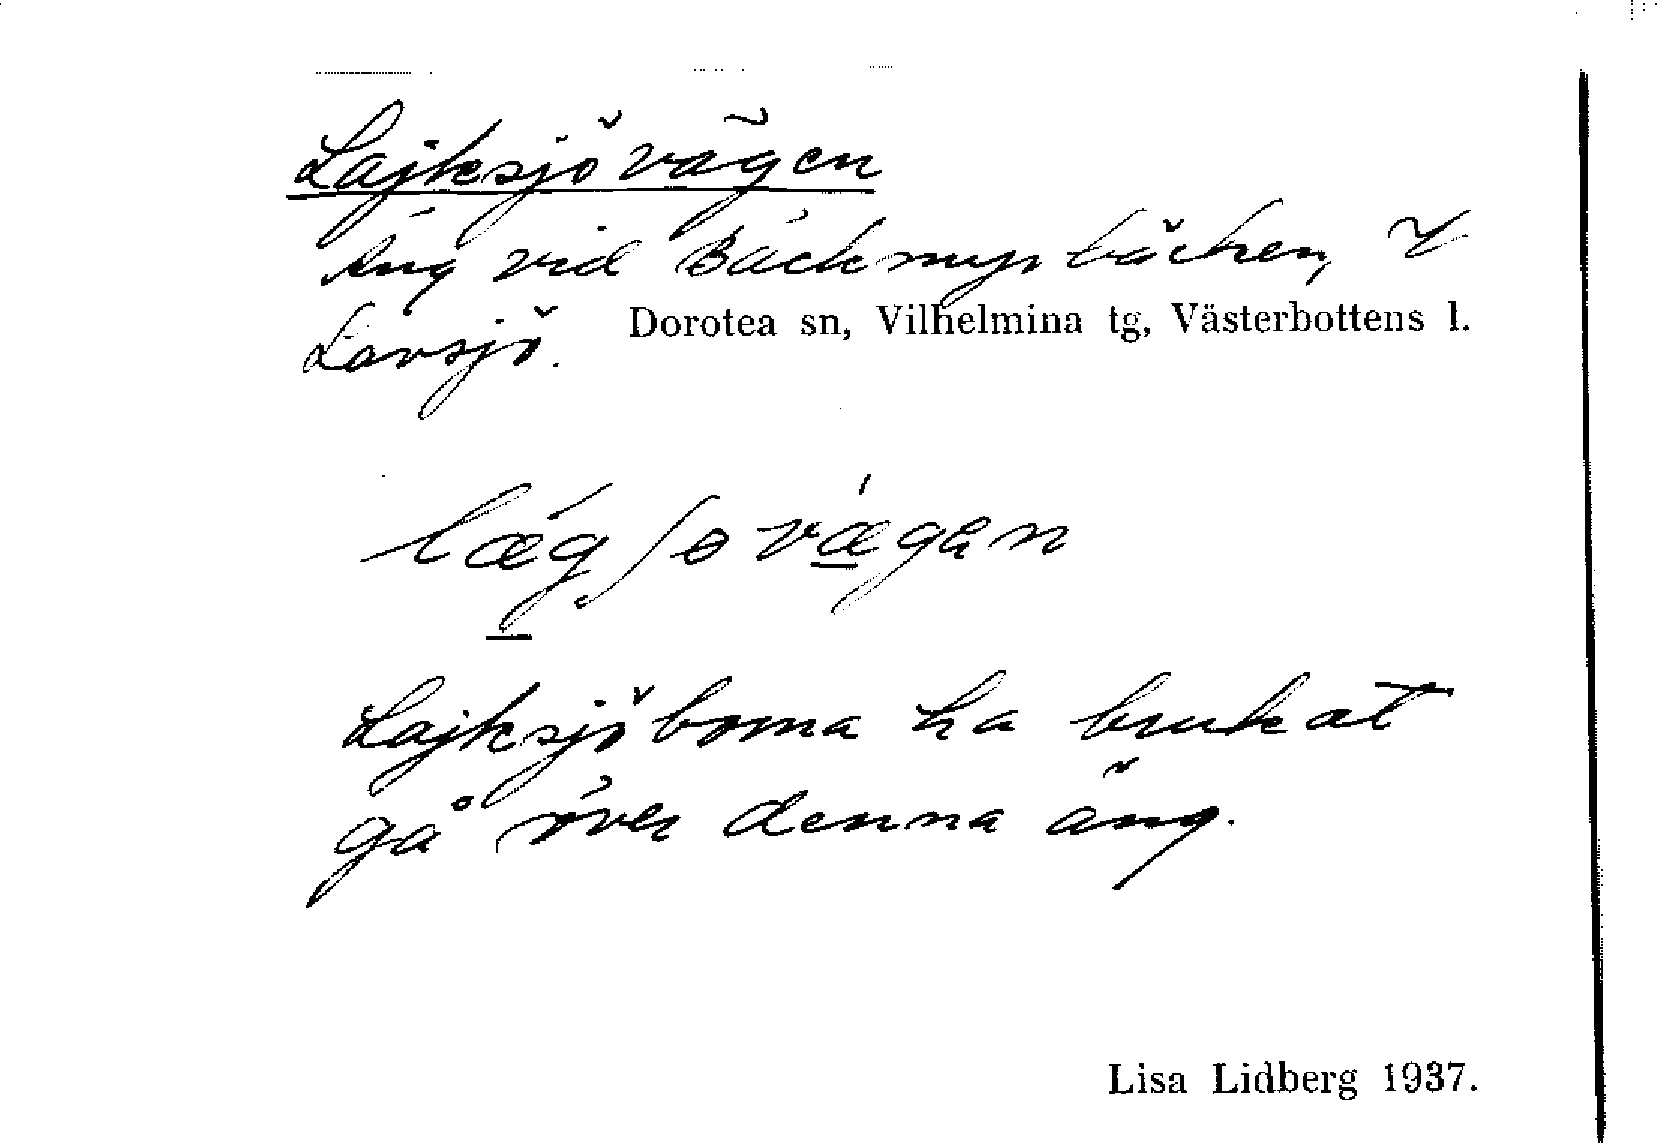 Lajksjövägen
Äng vid Bäckmyrbäcken, V
Lavsjö.
Dorotea sn, Vilhelmina tg, Västerbottens l.
Lajksjöborna ha brukat
gå över denna äng.
Lisa Lidberg 1937.